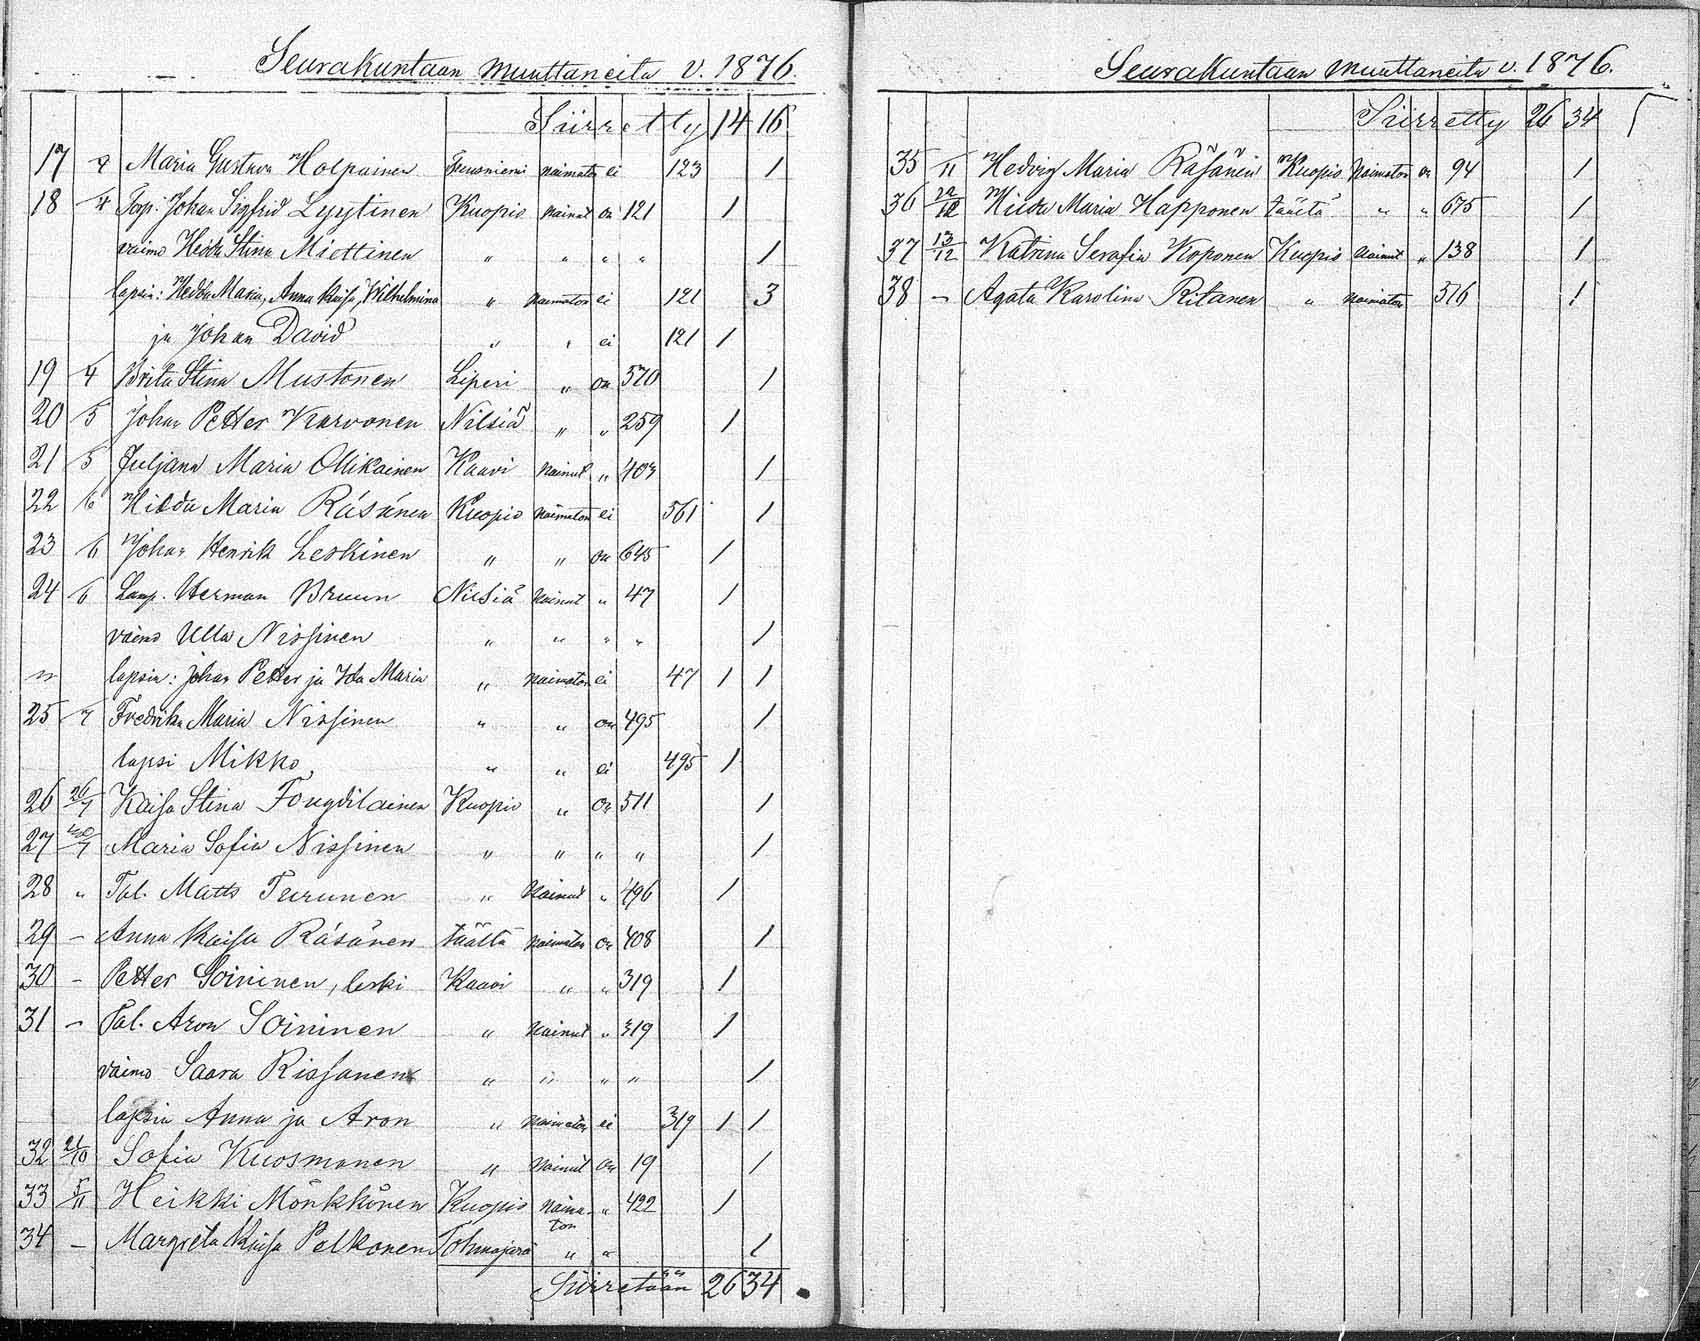 Seurakuntaan muuttaneita v. 1876.
Siirretty 14 16
17 4 Maria Gustava Holpainen Tuusniemi naimaton ei 123 1
18 4 Torp. Johan Sigfrid Lyytinen Kuopio nainut on 121 1
vaimo Hedda Stina Miettinen " " " " 1
lapsia: Hedda Maria, Anna Kaisa, Wilhelmina " naimaton ei 121 3
ja Johan David " " ei 121 1
19 4 Brita Stina Mustonen Liperi " on 570 1
20 5 Johan Petter Karvonen Nilsiä " " 259 1
21 5 Juljana Maria Ollikainen Kaavi nainut " 403 1
22 6 Hilda Maria Räsänen Kuopio naimaton ei 561 1
23 6 Johan Henrik Leskinen " " on 645 1
24 6 Lamp. Herman Bruun Nilsiä nainut " 47 1
vaimo Ulla Nissinen " " " " 1
" lapsia: Johan Petter ja Ida Maria " naimaton ei 47 1 1
25 7 Fredrika Maria Nissinen " " on 495 1
lapsi Mikko " " ei 495 1
26 26/7 Kaisa Stina Fougdilainen Kuopio " on 511 1
27 /7 Maria Sofia Nissinen " " " " 1
28 " Tal. Matts Turunen " nainut " 496 1
29 – Anna Kaisa Räsänen täältä naimaton on 408 1
30 – Petter Soininen, leski Kaavi " " 319 1
31 – Tal. Aron Soininen " nainut " 319 1
vaimo Saara Rissanen " " " " 1
lapsia Anna ja Aron " naimaton ei 319 1 1
32 21/10 Sofia Kuosmanen " nainut on 19 1
33 5/11 Heikki Mönkkönen Kuopio naimaton " 422 1
34 – Margreta Kaisa Pelkonen Tohmajärvi " " 1
Siirretään 26 34
Seurakuntaan muuttaneita v. 1876.
Siirretty 26 34
35 /11 Hedvig Maria Räsänen Kuopio naimaton on 94 1
36 22/12 Hilda Maria Happonen täältä " " 675 1
37 13/12 Katrina Serafia Koponen Kuopio nainut " 138 1
38 – Agata Karolina Ritanen " naimaton 516 1